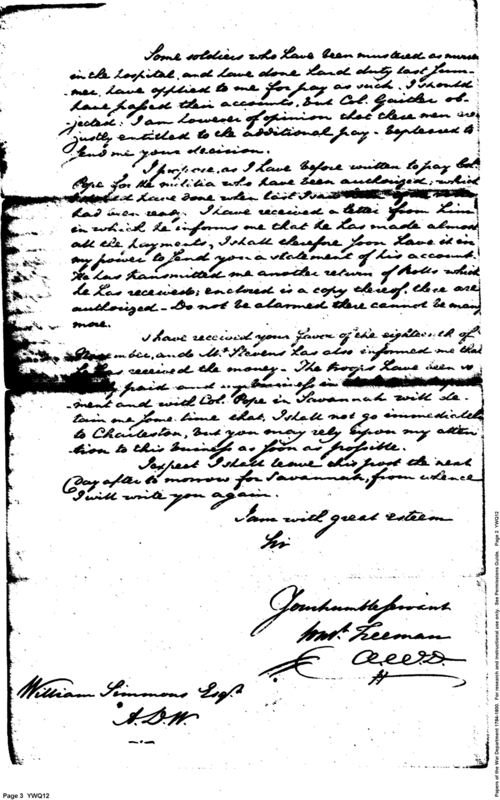 Some soldiers who have been mustered as nurses
in the hospital, and have done hard duty last Sum-
mer, have applied to me for pay as such. I should
have passed their accounts, but Col. Gaither ob-
jected. I am however of opinion that these men are
justly entitled to the additional pay -
send me your decision.
I propose, as I have before written to pay Col.
Pope for the militia who have been authorized; which
I should have done when last I saw
had been ready. I have received a letter from him
in which he informs me that he has made almost
all the payments, I shall therefore soon have it in
my power to send you a statement of his account.
He has transmitted me another return of Rolls which
he has received; enclosed is a copy thereof, these are
authorized - Do not be alarmed there cannot be many
more.
I have received your favor of the eighteenth of
and Mr. Stevens has also informed me that
he has received the money - The troops have been so
paid and my business in
ment and with Col. Pope in Savannah will de-
tain me some time that, I shall not go immediately
to Charleston, but you may rely upon my atten-
tion to this business as soon as possible.
I expect I shall leave this post the next
Day after to morrow for Savannah, from whence
I will write you again.
I am with great esteem
Sir
Your humble servant
Freeman
A.W.D.
William Simmons Esqr.
A.D.W.
Page 3 YWQ12
Papers of the War Department 1784-1800. For research and instructional use only. See Permissions Guide. Page 3 YWQ12